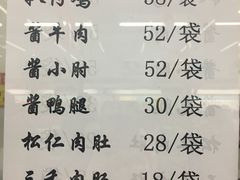 酱牛肉 52/袋
酱小肘 52/袋
酱鸭腿 30/袋
松仁肉肚 28/袋
18/袋